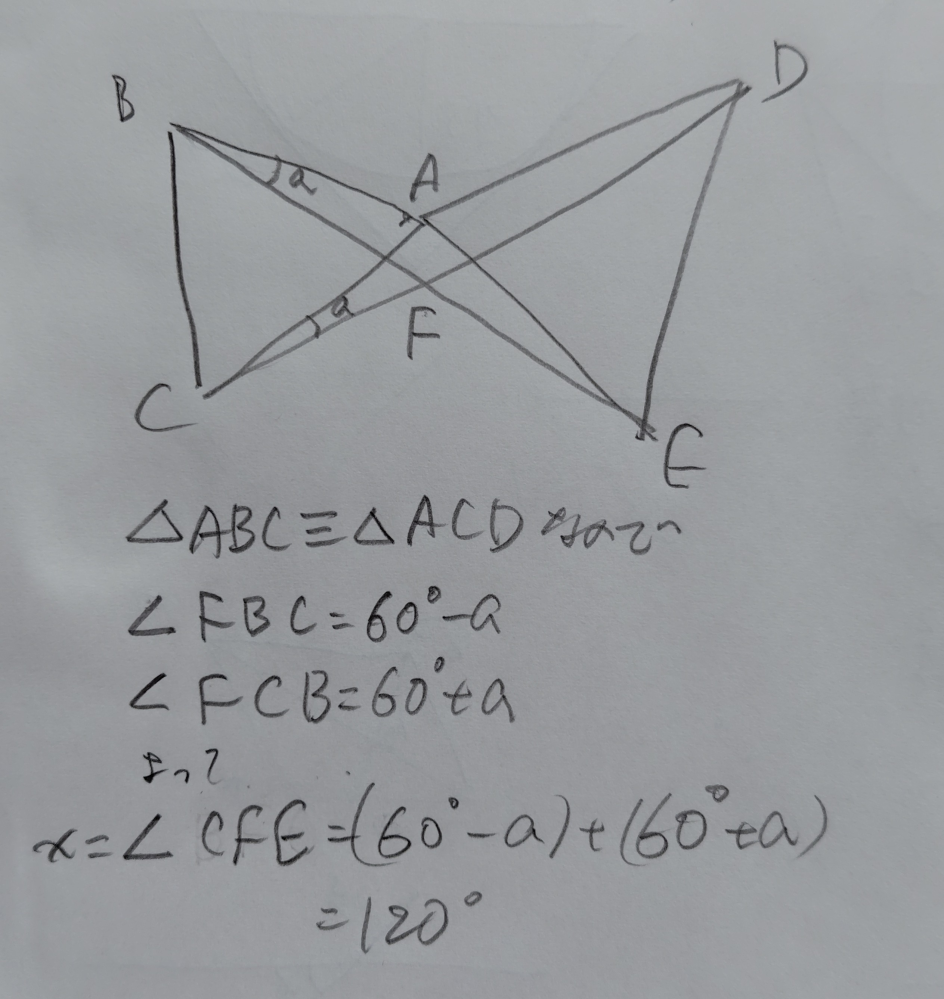 B
D
a
A
a
F
C
E
△ABC≡△ACDなので
∠FBC=60°-a
∠FCB=60°+a
よって
x=∠CFE=(60°-a)+(60°+a)
=120°